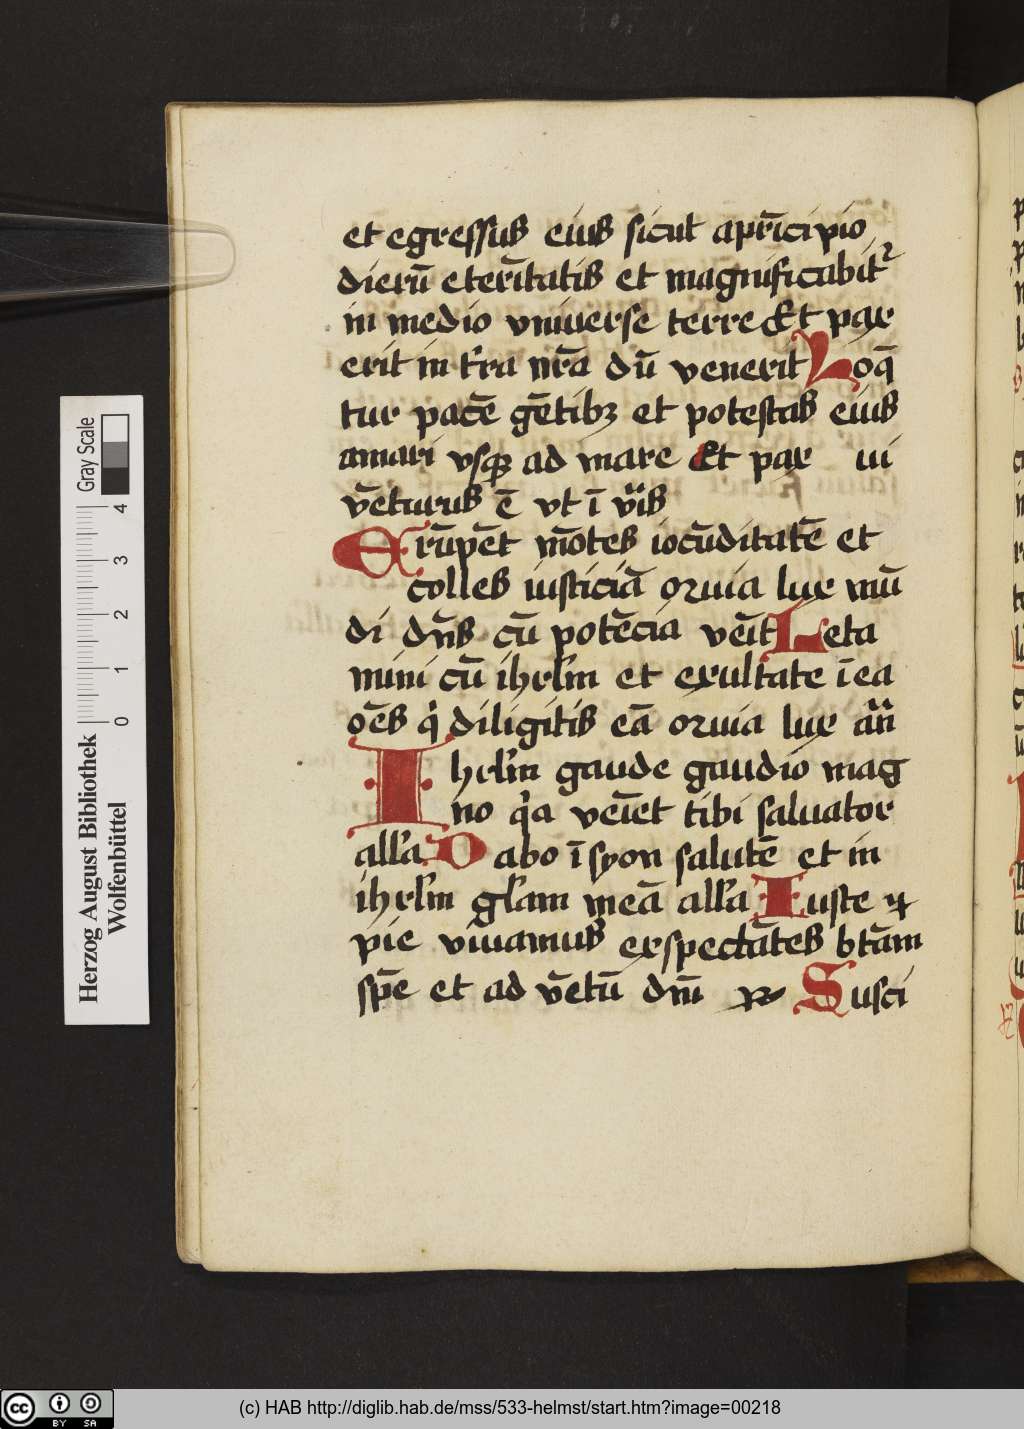 et egressus eius sicut apri̅cipio
dieru̅ eteri̅tatis et magnificabit᷑
in medio vniuerse terre Et pax
erit in t'ra nr̅a du̅ venerit Loq̅
tur pace̅ ge̅tibꝫ et potestas eius
amari vsqꝫ ad mare Et pax ui
ve̅turus e̅ vt i̅
Eru̅pe̅t mo̅tes iocu̅ditate̅ et
colles iusticia̅ lux mu̅
di dn̅s cu̅ pote̅cia vei̅t Leta
mini cu̅ ihrl'm et exultate i̅ ea
oe̅s qi diligitis ea̅ lux
Ihrl'm gaude gaudio mag
no qa vei̅et tibi saluator
all'a Dabo i̅ syon salute̅ et in
ihrl'm gl'am mea̅ all'a Iuste ⁊
pie viuamus exspecta̅tes bta̅m
spe̅ et ad ve̅tu̅ dn̅i ℞ Susci
Gray Scale
4
3
2
1
0
Herzog August Bibliothek
Wolfenbüttel
cc BY SA
(c) HAB http://diglib.hab.de/mss/533-helmst/start.htm?image=00218